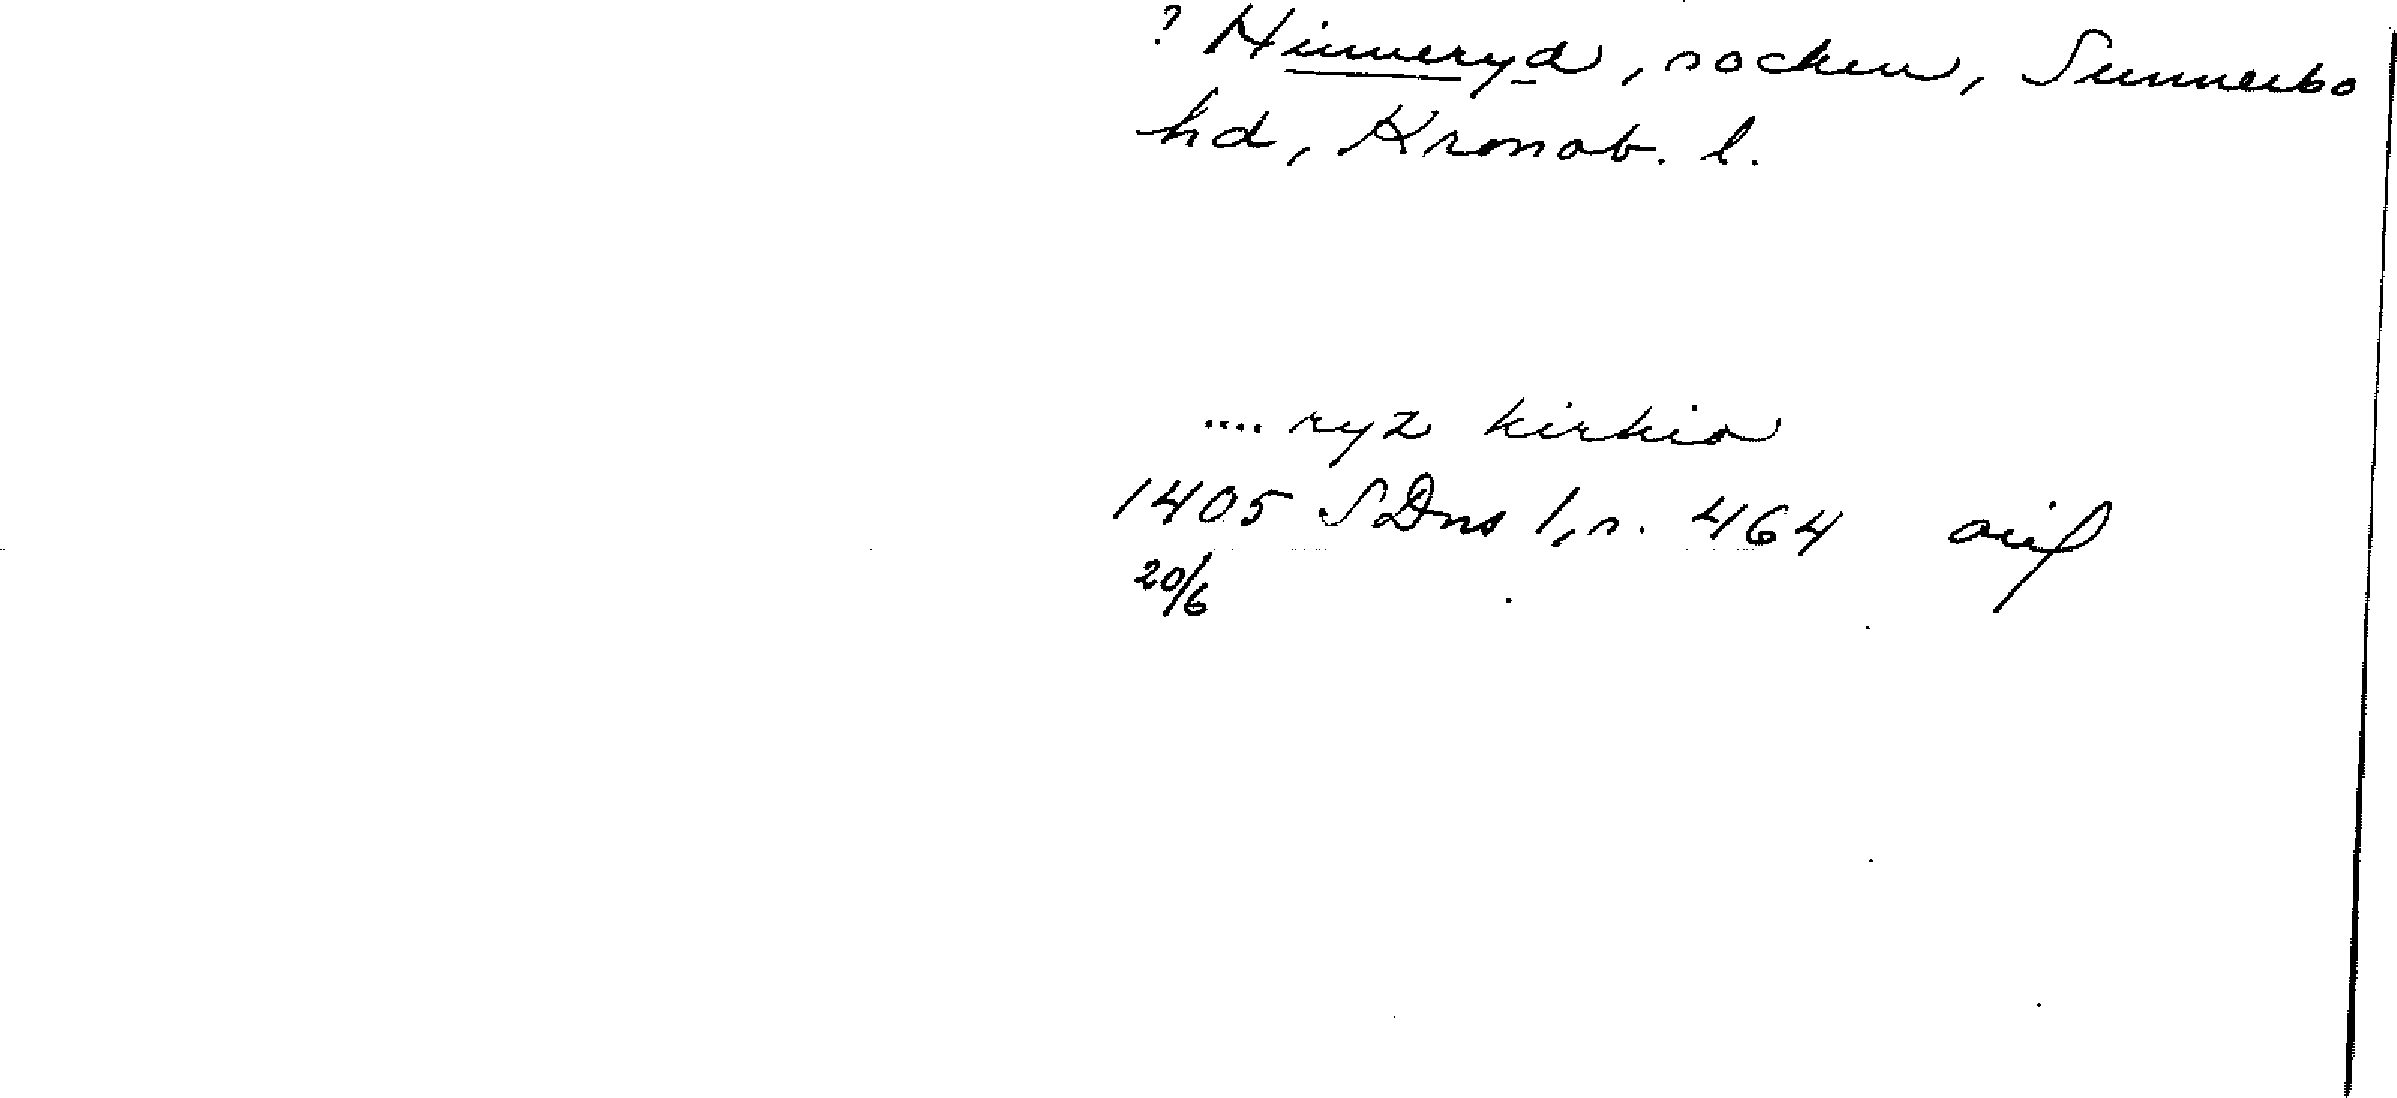 ? Hinneryd, socken, Sunnerbo
hd, Kronob. l.
.... ryz kirkio
1405 SDns 1, s. 464 avs
20/6